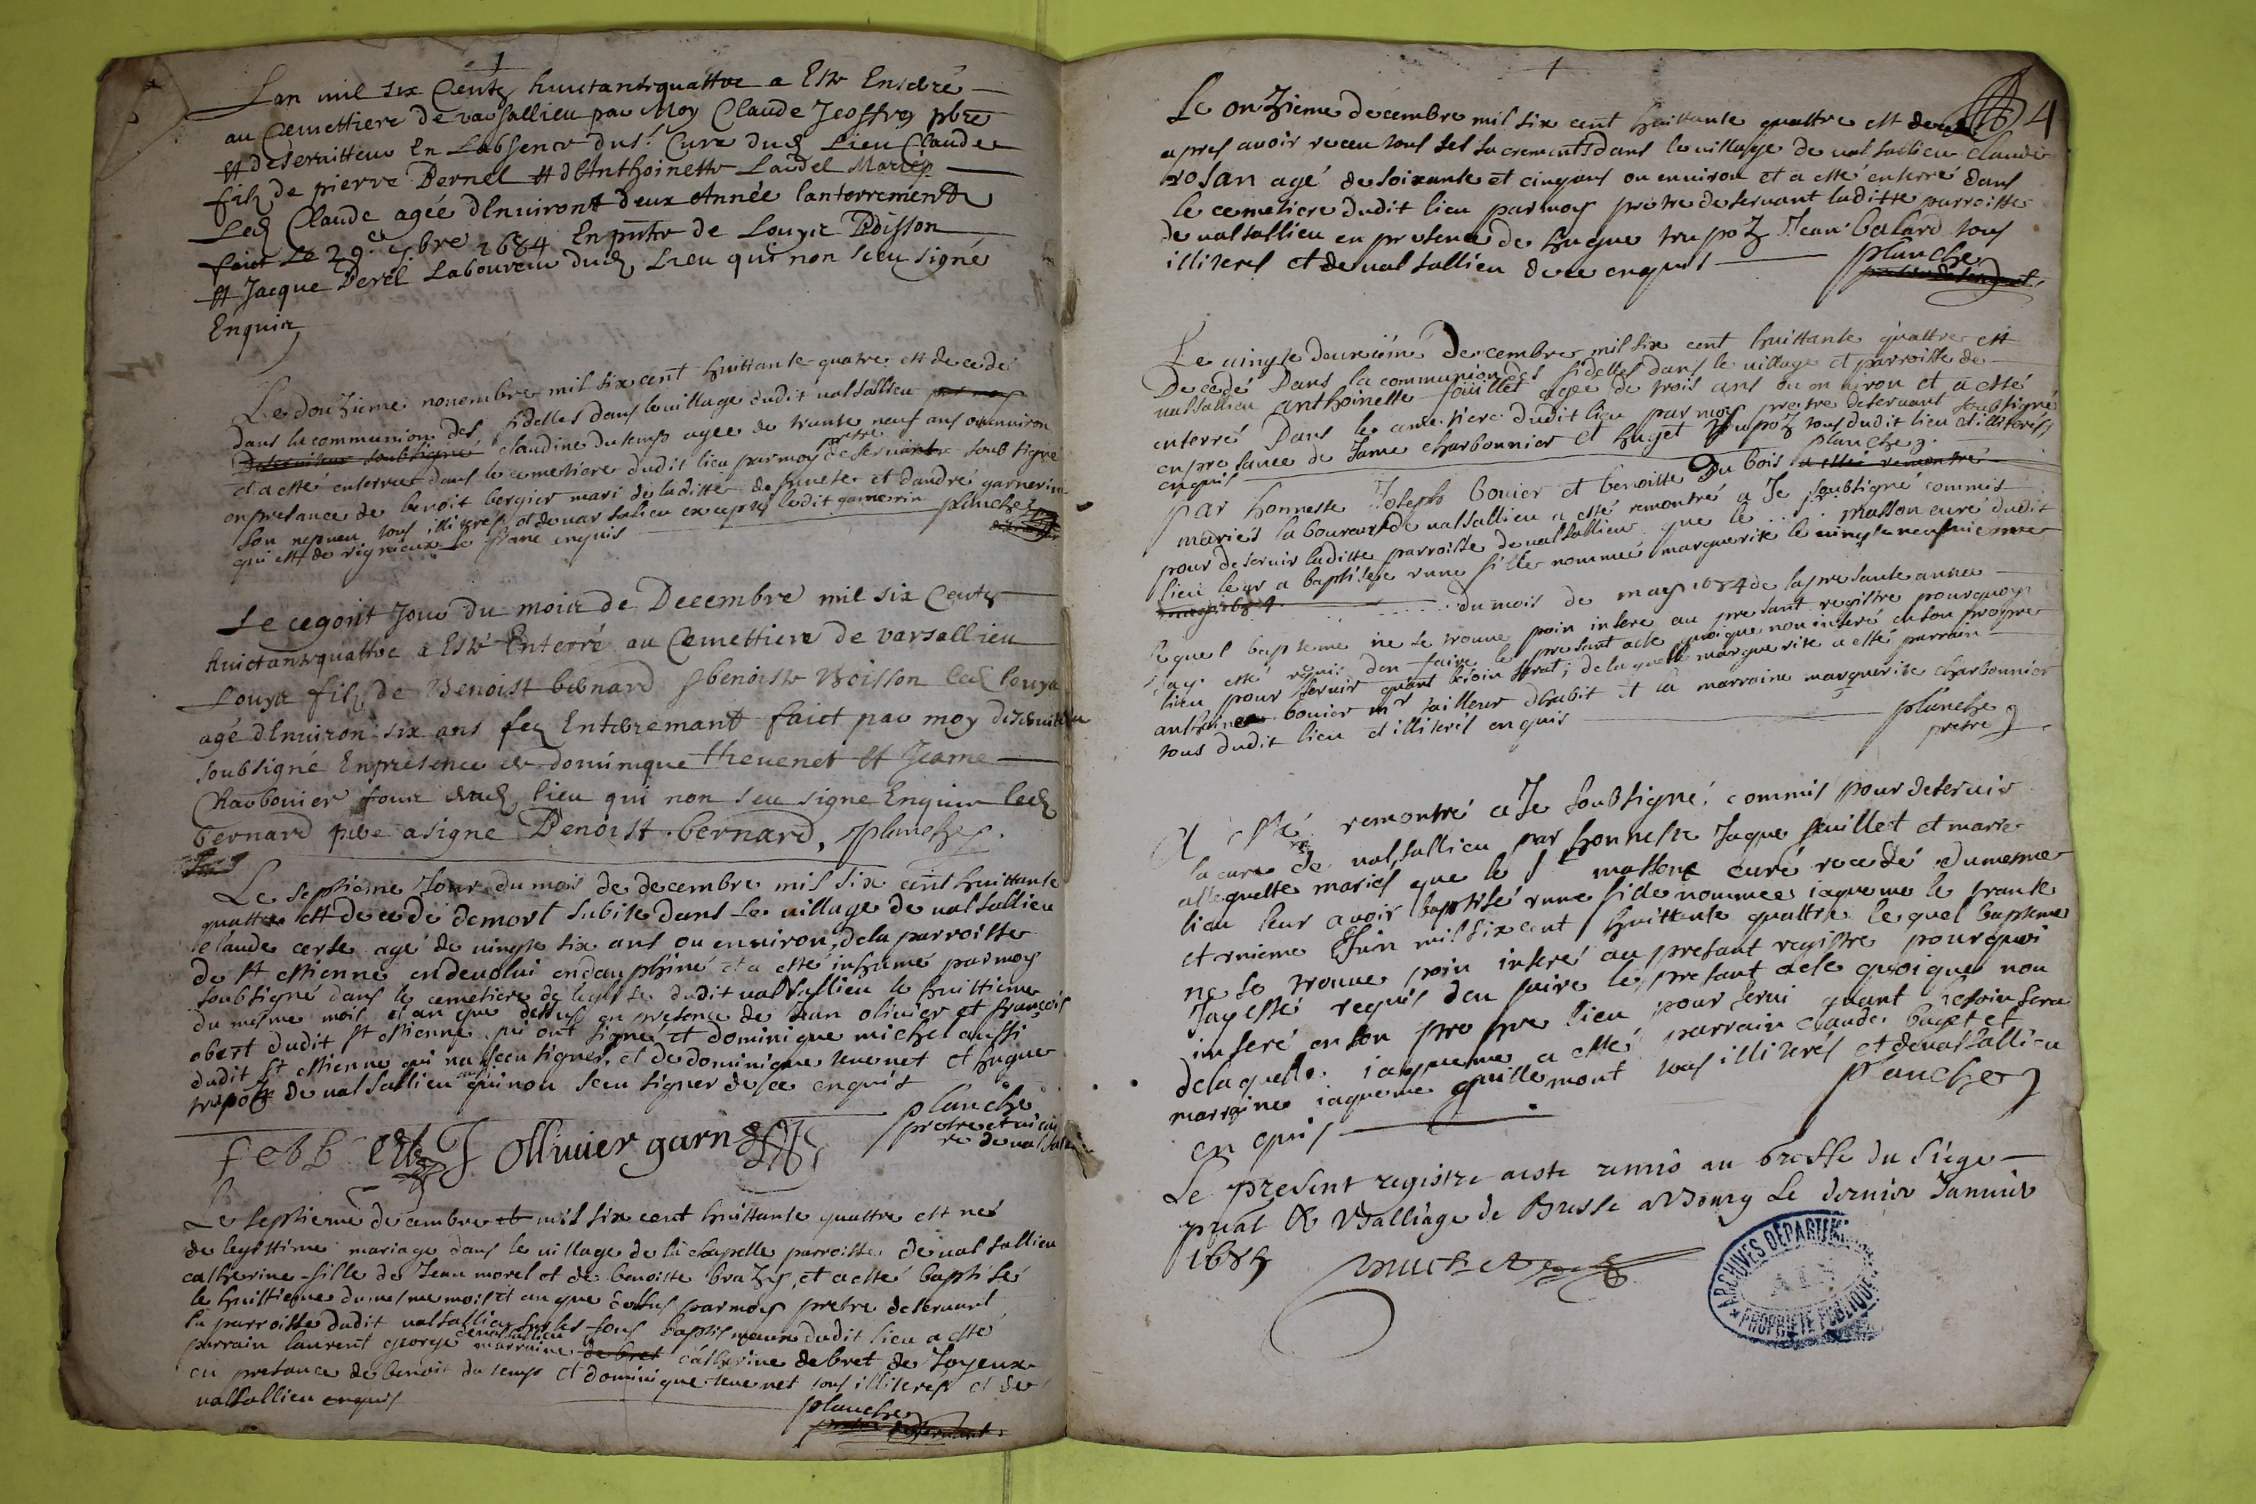 Lan mil six Cents huictante quattre a Esté Enterré
au Cemettiere de varsallieu par Moy Claude Jeoffrey pbre
et deservitteur En Labsence du sr Curé dud Lieu Claude
filz de pierre Pernel et dAnthoinette Laudel Mariés
Led Claude agée dEnviront deux Année lanterrement
faict Le 29e 9bre 1684 En pntce de Louys Poisson
et Jacque Perel Laboureur dud Lieu qui non sceu signé
Enquis
Le douzieme novembre mil six cent huittante quatre est decedé
dans la communion des fidelles dans le village dudit valsallieu
deserviteur soubsigné claudine dutemps agée de trante neuf ans ou environ
pretre
et a esté enterrée dans le cemetiere dudit lieu par moy deservant soub signé
en presance de benoit bergier mari de laditte defunte et dandré garnerin
son nepveu tous illitrés et de varsalieu excepté ledit garnerin planche
qui est de rignieux le franc enquis
Le cegont Jour du moic de Decembre mil six Cents
huictante quattre a Esté Enterré au Cemettiere de varsallieu
Louys filz de Benoist bernard et benoiste Boisson led louys
agé dEnviron six ans led Enterremant faict par moy deserviteur
soubsigné En presence de dominique thevenet et Jeame
Charbonier tous dud lieu qui non sceu signe Enquis led
bernard pere a signe Benoist bernard, planche
Le septieme Jour du mois de decembre mil six cent huittante
quattre est decedé de mort subite dans le village de valsallieu
claude certe agé de vingte six ans ou environ, de la parroisse
de st estienne en devolui en dauphiné et a esté inhumé par moy
soubsigné dans le cemetiere de leglise dudit valsallieu le huittieme
du mesme mois et an que dessus en presence de Jean olivier et françois
obert dudit st estienne qui ont signé et dominique michel aussi
dudit st estienne qui na sceu signer, et de dominique tevenet et hugue
trupoz de valsallieu aussi qui non sceu signer de ce enquis
planche
pretre et vicai
re de valsallieu
J ollivier garn
Le septieme decembre mil six cent huittante quattre est née
de legittime mariage dans le village de la chapelle parroisse de valsallieu
catherine fille de Jean morel et de benoitte brazy, et a esté baptisée
le huittieme du mesme mois et an que dessus par moy pretre deservant
la parroisse dudit valsallieu sur les fons baptismaux dudit lieu a esté
parrain laurent george de valsallieu marraine de bret catherine debret de Joyeux
en presance de benoit dutemps et dominique tevenet tous illiterés et de
valsallieu enquis
planche
pretre deservant
4
Le onzieme decembre mil six cent huittante quattre est decedé
apres avoir receu tous ses sacrements dans le village de valsallieu claude
rosan agé de soixante et cinq ans ou environ et a esté enterré dans
le cemetiere dudit lieu par moy pretre deservant laditte parroisse
de valsallieu en presence de hugue trupoz Jean balard tous
illiterés et de valsallieu de ce enquis
planche
pretre deservant
Le vingte deuxieme Decembre mil six cent huittante quattre est
Decedé Dans la communion des fidelles dans le village et parroisse de
valsallieu anthoinette fouillet agée de trois ans ou environ et a esté
enterré Dans le cemetiere dudit lieu par moy pretre deservant soubsigné
en presance de Jame charbonnier et huget trupoz tous dudit lieu et illiterés
enquis planche
par honneste Joseph bovier et benoitte Du bois a esté remontré
mariés laboureurs de valsallieu a esté remontré a Je soubsigné commis
pour deservir laditte parroisse de valsallieu que le sr masson curé dudit
lieu leur a baptisée vune fille nommée marguerite le vingte neufviemme
du mois de may 1684 de la presante année
lequel bapteme ne se trouve poin inseré au presant registre pourquoy
J'ay esté requis den faire le presant acte quoique non inseré en son propre
lieu pour servir quant besoin serat; de laquelle marguerite a esté parrain
anthoine bovier mr tailleur dhabit et la marraine marguerite charbonnier
tous dudit lieu et illiterés enquis
planche
pretre
A esté remontré a Je soubsigné commis pour deservir
la cure de valsallieu par honneste Jaque fouillet et marie
allequette mariés que le sr massone curé recedé du mesme
lieu leur avoir baptisé vune fille nommée iaqueme le trante
et vnieme Juin mil six cent huittante quattre le quel bapteme
ne se trouve poin inseré au presant registre pourquoi
Jay esté requis den faire le presant acte quoique non
inseré en son propre lieu pour servi quant besoin sera
de laquelle iaqueme a esté parrain claude buget et
marraine iaqueme guillemont tous illiterés et de valsallieu
enquis
planche
Le present registre a esté remis au greffe du siege
pnal & Balliage de Bresse a Bourg Le dernier Janvier
1685
ARCHIVES DÉPARTEM
AIN
PROPRIÉTÉ PUBLIQUE